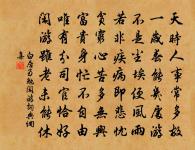 天時人事常多故
一歲春能幾處遊
不是塵埃便風雨
若非疾病即悲憂
貧窮心苦多無興
富貴身忙不自由
唯有分司官恰好
閑遊雖老未能休
白居易勉閑遊詩